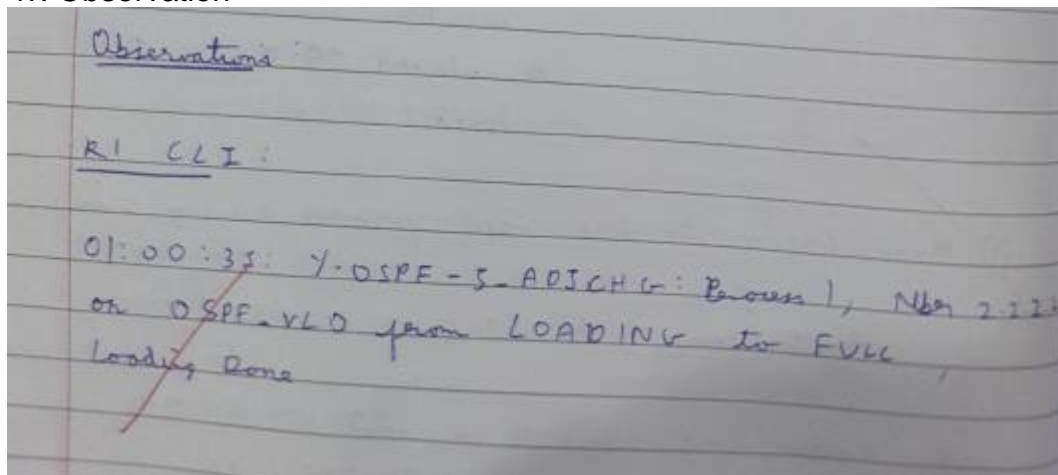 Observations :
R1 CLI :
01:00:35: %-OSPF-5-ADJCHG: Process 1, Nbr 2.2.2.
on OSPF_VL0 from LOADING to FULL,
Loading Done